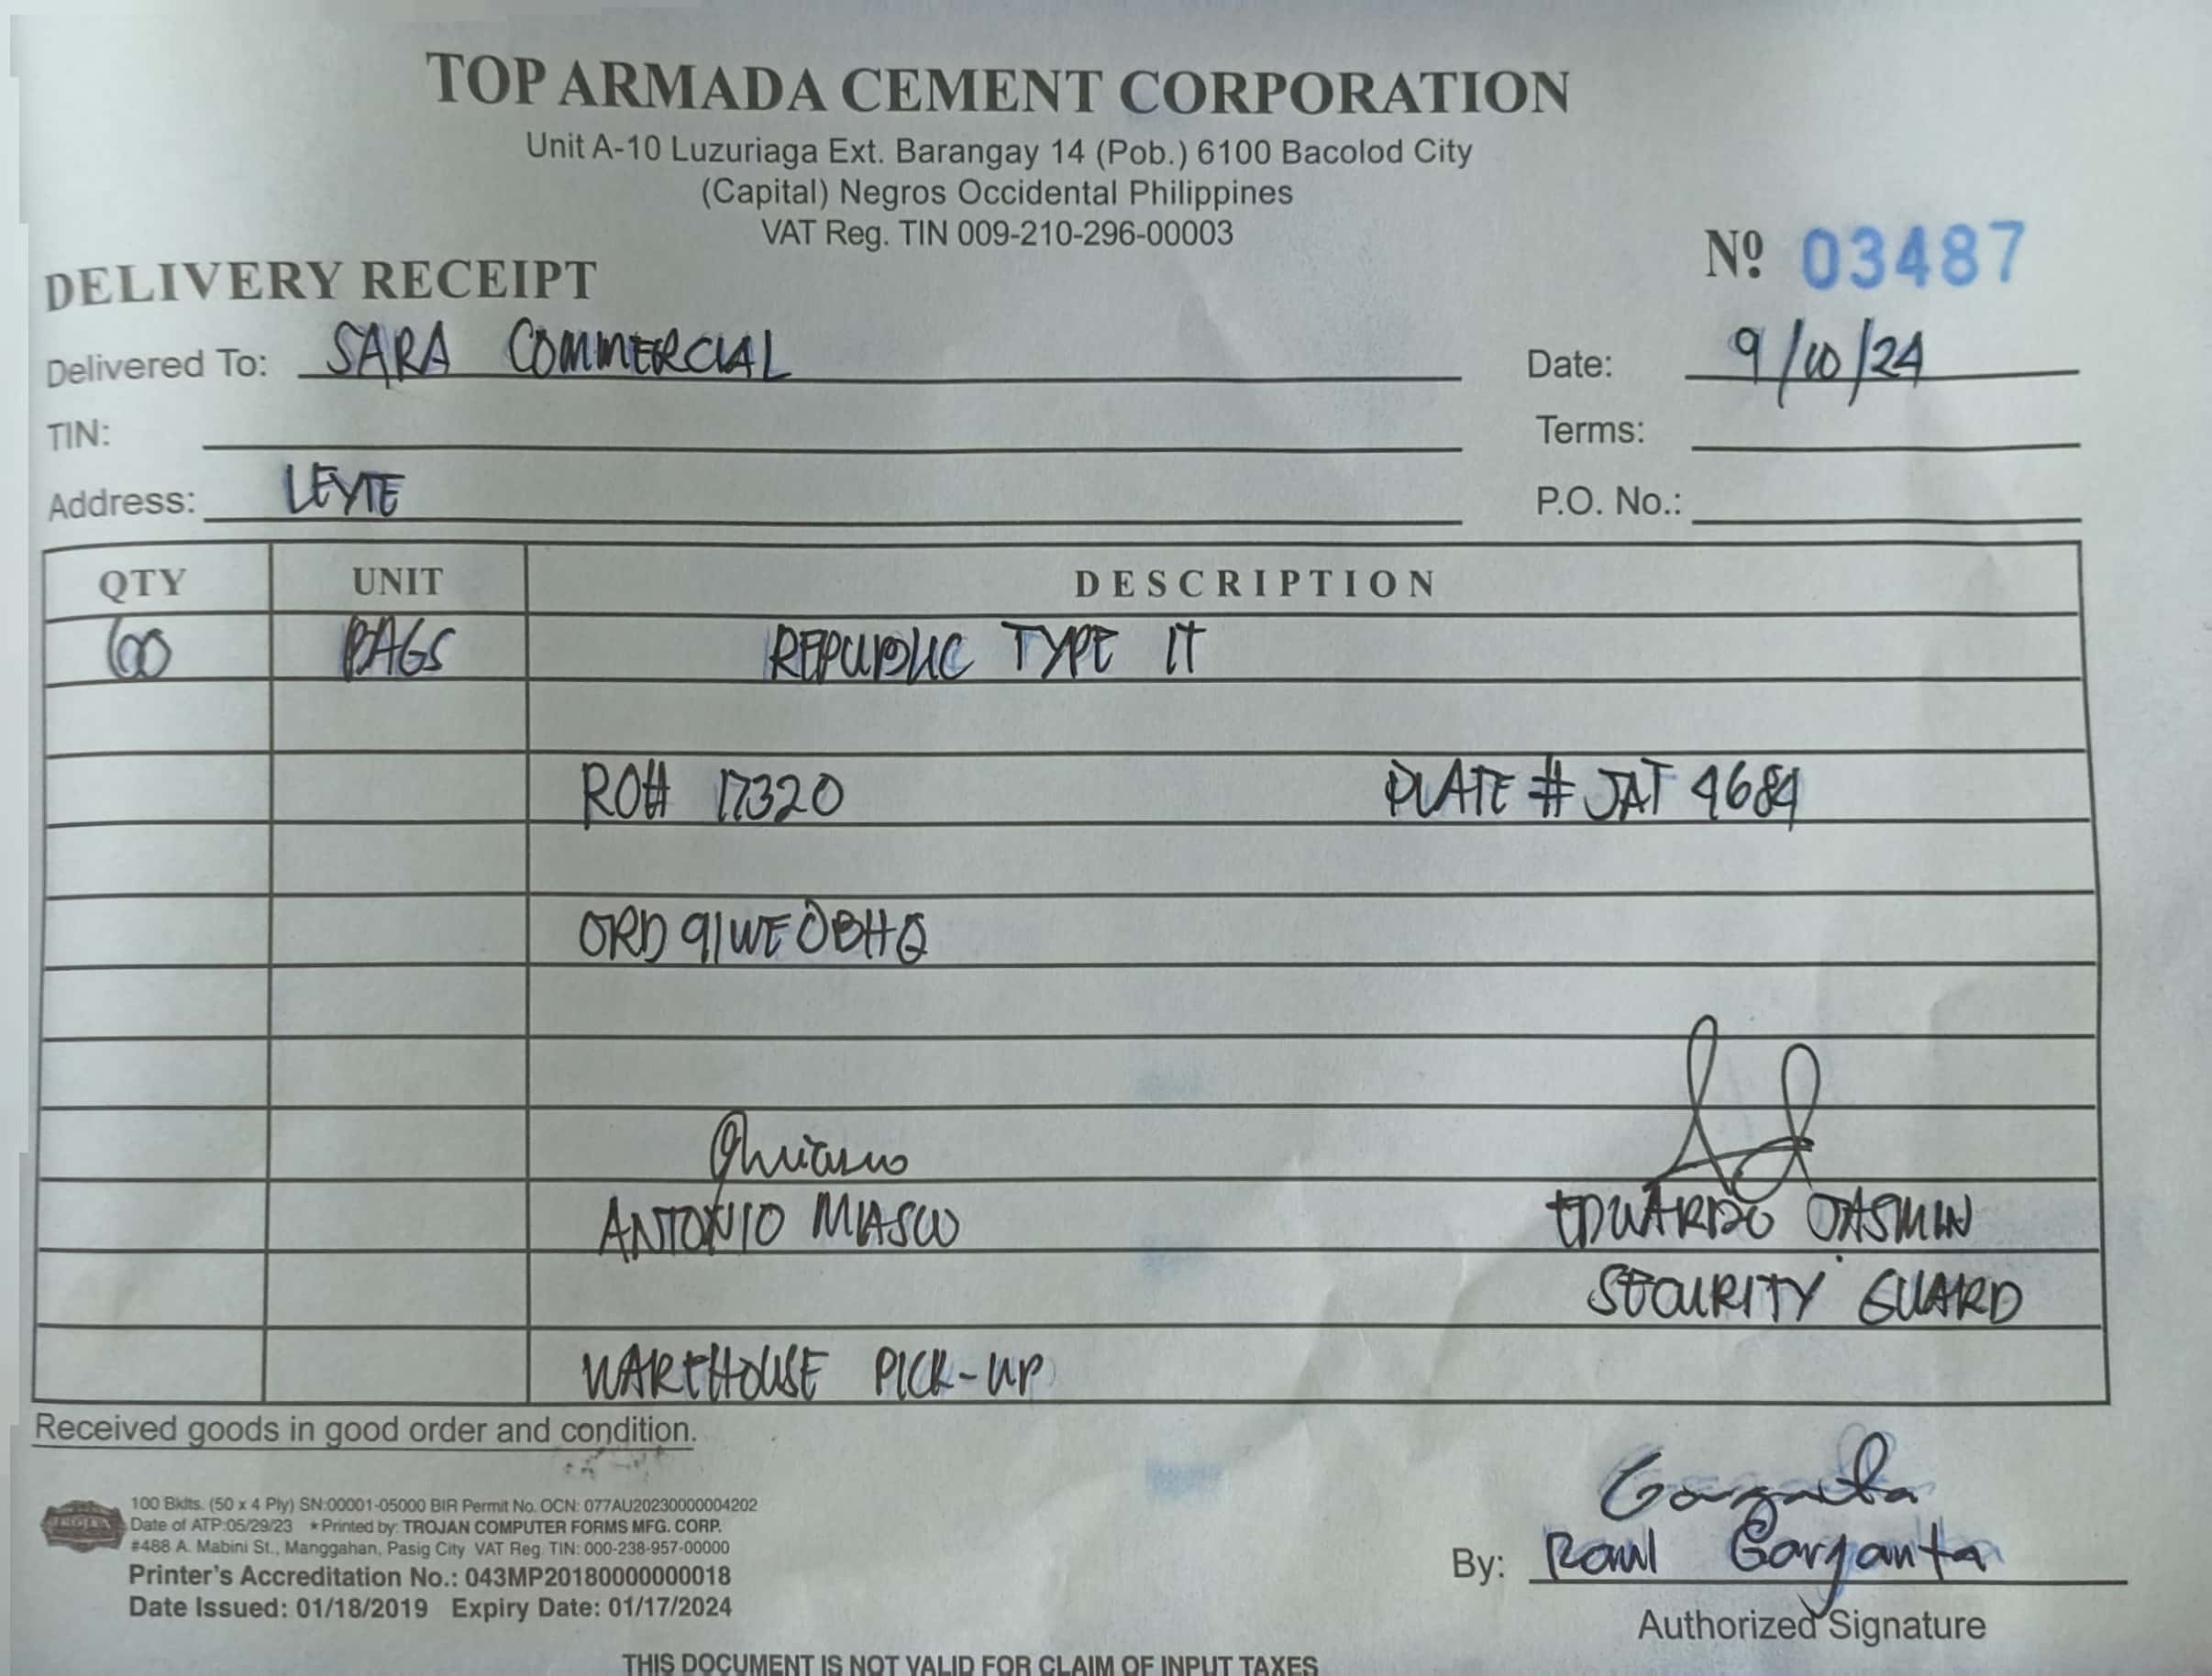 TOP ARMADA CEMENT CORPORATION
Unit A-10 Luzuriaga Ext. Barangay 14 (Pob.) 6100 Bacolod City
(Capital) Negros Occidental Philippines
VAT Reg. TIN 009-210-296-00003
Nº 03487
DELIVERY RECEIPT
Delivered To: SARA COMMERCIAL
Date: 9/10/24
TIN:
Terms:
Address: LEYTE
P.O. No.:
QTY UNIT DESCRIPTION
BAGS REPUBLIC TYPE 1T
RO# 17320 PLATE # JAT 4684
ORD 91WEOBHQ
ANTONIO MIASCO EDWARDO JASMIN
SECURITY GUARD
WAREHOUSE PICK-UP
Received goods in good order and condition.
100 Bklts. (50 x 4 Ply) SN:00001-05000 BIR Permit No. OCN: 077AU20230000004202
Date of ATP:05/29/23 ★Printed by: TROJAN COMPUTER FORMS MFG. CORP.
#488 A. Mabini St., Manggahan, Pasig City VAT Reg. TIN: 000-238-957-00000
Printer's Accreditation No.: 043MP20180000000018
Date Issued: 01/18/2019 Expiry Date: 01/17/2024
TROJAN
By: Raul Garganta
Authorized Signature
THIS DOCUMENT IS NOT VALID FOR CLAIM OF INPUT TAXES